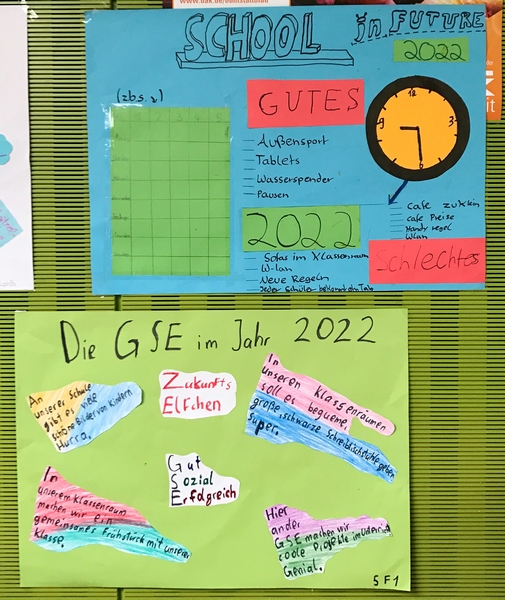 SCHOOL in FUTURE
2022
(zb s. 2)
GUTES
12
3
6
9
Außensport
Tablets
Wasserspender
Pausen
2022
Sofas im Klassenraum
W-lan
Neue Regeln
Jeder Schüler bekommt ein Tab
cafe zu klein
cafe Preise
Handy regel
Wlan
Schlechtes
Die GSE im Jahr 2022
An
unserer Schule
gibt es viele
schöne Bilder von Kindern
Hurra.
Zukunfts
Elfchen
In
unseren Klassenräumen
soll es bequeme,
große, schwarze Schreibtischstühle geben
Super.
Gut
Sozial
Erfolgreich
In
unserem Klassenraum
machen wir ein
gemeinsames Frühstück mit unserer
Klasse.
Hier
an der
GSE machen wir
coole Projekte im Unterricht
Genial.
5F1